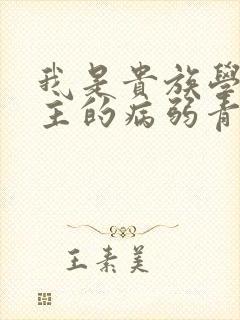 我是貴族學
主的病弱青
王素美